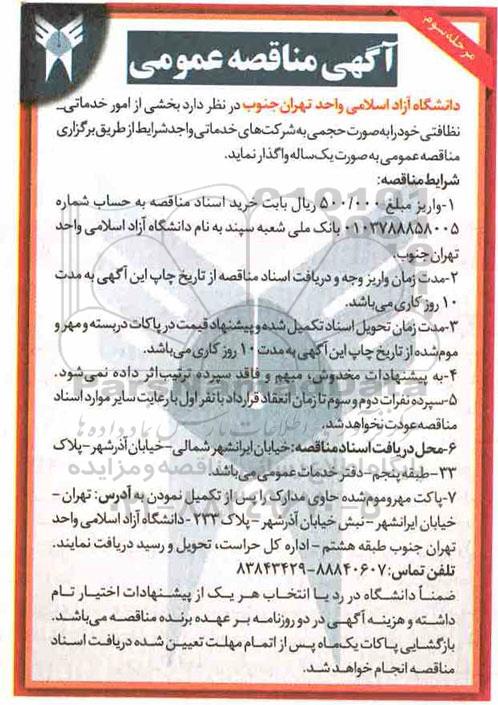 مرحله سوم
آگهی مناقصه عمومی
دانشگاه آزاد اسلامی واحد تهران جنوب در نظر دارد بخشی از امور خدماتی_
نظافتی خود را به صورت حجمی به شرکت‌های خدماتی واجد شرایط از طریق برگزاری
مناقصه عمومی به صورت یک‌ساله واگذار نماید.
شرایط مناقصه:
۱-واریز مبلغ ۵۰۰/۰۰۰ ریال بابت خرید اسناد مناقصه به حساب شماره
۰۱۰۳۷۸۸۸۵۸۰۰۵ بانک ملی شعبه سپند به نام دانشگاه آزاد اسلامی واحد
تهران جنوب.
۲-مدت زمان واریز وجه و دریافت اسناد مناقصه از تاریخ چاپ این آگهی به مدت
۱۰ روز کاری می‌باشد.
۳-مدت زمان تحویل اسناد تکمیل شده و پیشنهاد قیمت در پاکات دربسته و مهر و
موم شده از تاریخ چاپ این آگهی به مدت ۱۰ روز کاری می‌باشد.
۴-به پیشنهادات مخدوش، مبهم و فاقد سپرده ترتیب اثر داده نمی‌شود.
۵-سپرده نفرات دوم و سوم تا زمان انعقاد قرارداد با نفر اول با رعایت سایر موارد اسناد
مناقصه عودت نخواهد شد.
۶-محل دریافت اسناد مناقصه: خیابان ایرانشهر شمالی-خیابان آذرشهر-پلاک
۳۳-طبقه پنجم-دفتر خدمات عمومی می‌باشد.
۷-پاکت مهر و موم شده حاوی مدارک را پس از تکمیل نمودن به آدرس: تهران -
خیابان ایرانشهر - نبش خیابان آذرشهر - پلاک ۲۳۳- دانشگاه آزاد اسلامی واحد
تهران جنوب طبقه هشتم - اداره کل حراست، تحویل و رسید دریافت نمایند.
تلفن تماس: ۸۸۸۴۰۶۰۷-۸۳۸۴۳۴۲۹
ضمناً دانشگاه در رد یا انتخاب هر یک از پیشنهادات اختیار تام
داشته و هزینه آگهی در دو روزنامه بر عهده برنده مناقصه می‌باشد.
بازگشایی پاکات یک‌ماه پس از اتمام مهلت تعیین شده دریافت اسناد
مناقصه انجام خواهد شد.